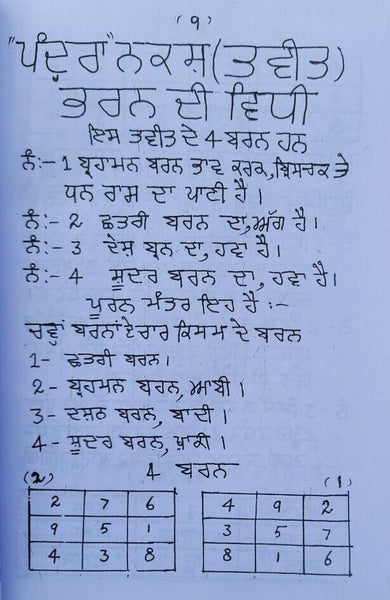 (੧)
"ਪੰਦਰਾ" ਨਕਸ਼ (ਤਵੀਤ)
ਭਰਨ ਦੀ ਵਿਧੀ
ਇਸ ਤਵੀਤ ਦੇ 4 ਬਰਨ ਹਨ
ਨੰ:- 1 ਬ੍ਰਾਹਮਨ ਬਰਨ ਭਾਵ ਕਰਕ, ਬ੍ਰਿਸਚਕ ਤੇ
ਧਨ ਰਾਸ ਦਾ ਪਾਣੀ ਹੈ।
ਨੰ:- 2 ਛਤਰੀ ਬਰਨ ਦਾ, ਅੱਗ ਹੈ।
ਨੰ:- 3 ਦਾ, ਹਵਾ ਹੈ।
ਨੰ:- 4 ਸ਼ੂਦਰ ਬਰਨ ਦਾ, ਹਵਾ ਹੈ।
ਪੂਰਨ ਮੰਤਰ ਇਹ ਹੈ :-
ਚਵ੍ਹਾਂ ਬਰਨਾਂ ਚਾਰ ਕਿਸਮ ਦੇ ਬਰਨ
1- ਛਤਰੀ ਬਰਨ।
2- ਬ੍ਰਹਮਨ ਬਰਨ, ਆਬੀ।
3- ਬਰਨ, ਬਾਦੀ।
4- ਸ਼ੂਦਰ ਬਰਨ, ਖ਼ਾਕੀ।
4 ਬਰਨ
(2) (1)
2 7 6 4 9 2
9 5 1 3 5 7
4 3 8 8 1 6